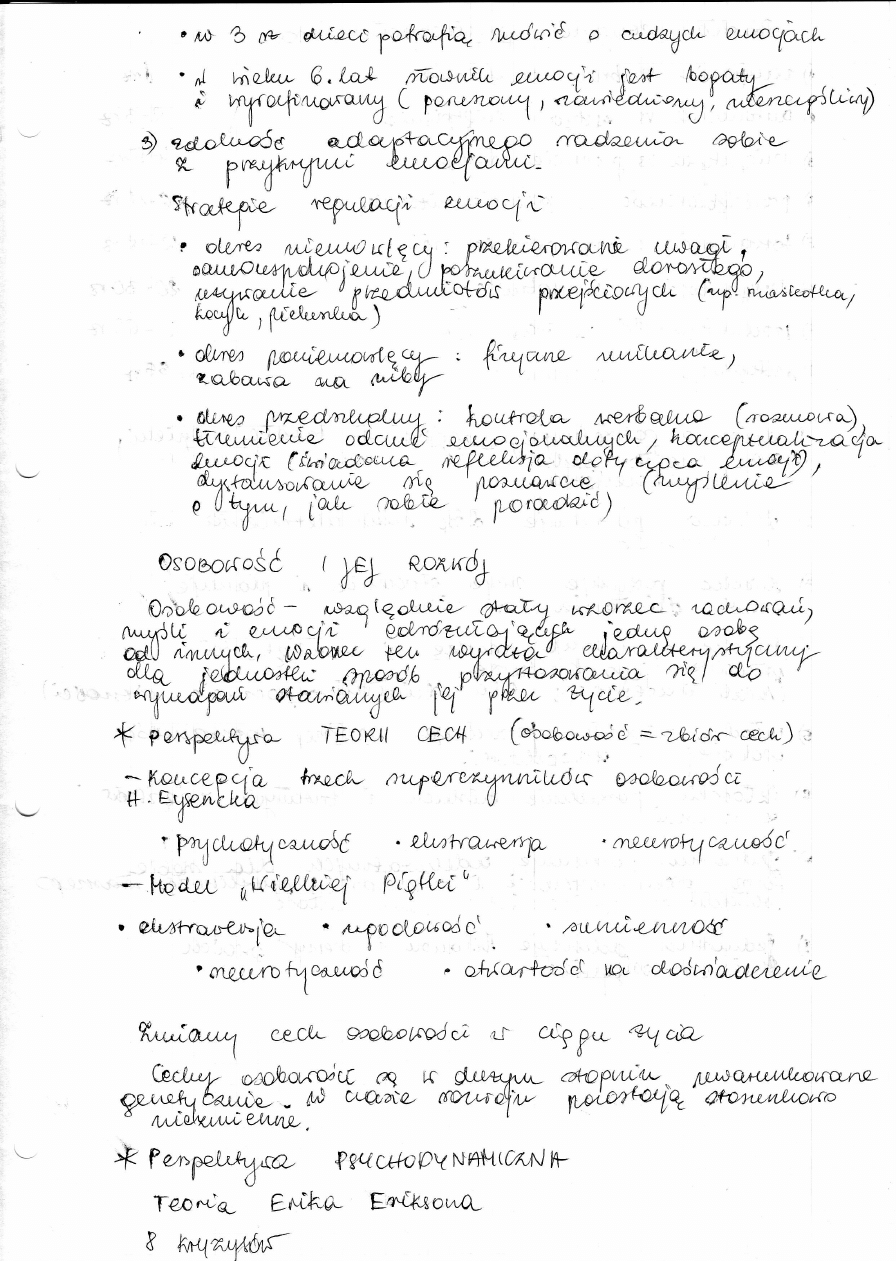 • w 3 rż dzieci potrafią mówić o cudzych emocjach
• W wieku 6. lat słownik emocji jest bogaty
i wyrafinowany (poruszony, zawiedziony, nieszczęśliwy)
3) zdolność adaptacyjnego radzenia sobie
z przykrymi emocjami.
Strategie regulacji emocji
• okres niemowlęcy: przekierowanie uwagi,
samouspokojenie, poszukiwanie dorosłego,
używanie przedmiotów przejściowych (np. maskotka,
kocyk, pieluszka)
• okres poniemowlęcy: fizyczne unikanie,
zabawa na niby
• okres przedszkolny: kontrola werbalna (rozmowa),
tłumienie odczuć emocjonalnych, konceptualizacja
emocji (świadoma refleksja dotycząca emocji),
dystansowanie się poznawcze (myślenie
o tym, jak sobie poradzić)
OSOBOWOŚĆ I JEJ ROZWÓJ
Osobowość – względnie stały wzorzec zachowań,
myśli i emocji odróżniających jedną osobę
od innych, wzorzec ten wyraża charakterystyczny
dla jednostki sposób przystosowania się do
wymagań stawianych jej przez życie.
* Perspektywa TEORII CECH (osobowość = zbiór cech)
– Koncepcja trzech superczynników osobowości
H. Eysencka
• psychotyczność • ekstrawersja • neurotyczność
– Model „Wielkiej Piątki"
• ekstrawersja • ugodowość • sumienność
• neurotyczność • otwartość na doświadczenie
Zmiany cech osobowości w ciągu życia
Cechy osobowości są w dużym stopniu uwarunkowane
genetycznie. W czasie rozwoju pozostają stosunkowo
niezmienne.
* Perspektywa PSYCHODYNAMICZNA
Teoria Erika Eriksona
8 kryzysów